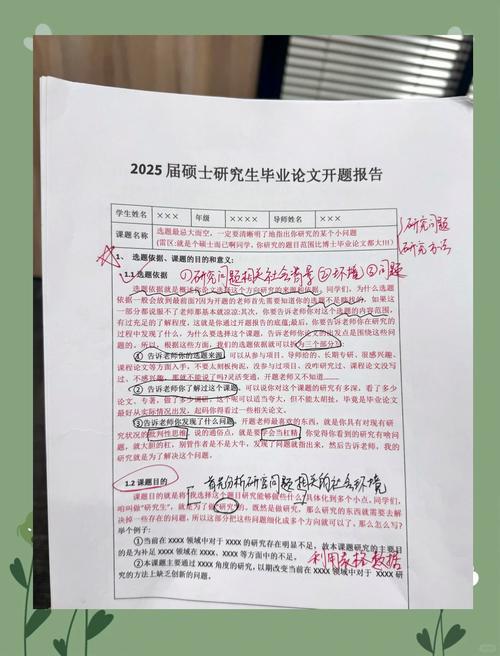 2025 届硕士研究生毕业论文开题报告
学生姓名 ××× 年级 ×××× 导师姓名 ×××
课题名称 选题最忌大而空，一定要清晰明了地指出你研究的某个小问题
(雷区:就是个硕士而已啊同学，你研究的题目范围比博士毕业论文都大!!!)
研究问题
研究方法
1、 选题依据、课题的目的和意义:
1.1 选题依据 ①研究问题相关社会背景 ②环境 ③问题
选题依据就是概述你论文选择这个方向研究的来源和依据，同学们，为什么选题
依据一般会放到最前面?因为开题的老师首先需要知道你的选题不是瞎找的，如果这
一部分都说服不了老师那基本就凉凉;其次，你要告诉老师你对这个选题的内容范围，
有过充足的了解程度，这就是你通过开题报告的底蕴;最后，你要告诉老师你在研究的
过程中发现了什么，为什么要选择这个课题，告诉老师你论文的出发点是围绕这些问题
的。所以，根据这些方面，我们的选题依据就可以拆为三个部分：
① 告诉老师你的选题来源，可以从参与项目、导师给的、长期专研、很感兴趣、
课程论文等方面入手，不要太刻板拘泥，没参与过项目、没咋研究过、课程论文没写
过、不感兴趣，那就不能说了吗?灵活变通，开题老师又不知道......
② 告诉老师你了解过这个课题，可以说你对这个课题的研究有多深，看了多少
论文、专著，做了多少调研，这个呢可以适当夸大，但不能太胡扯，毕竟是毕业论文
最好从实际情况出发，起码你得看过一些相关论文。
③告诉老师你发现了什么问题，开题老师最喜欢的东西，就是你具有对现有研
究状况的批判性思维，说的通俗点，就是要学会当杠精，你觉得你看到的研究有啥问
题，就大胆的杠，别管作者是不是大牛，发现了问题就指出来，然后告诉老师，我的
研究就是为了解决这个问题。
1.2 课题目的 首先分析研究问题相关的社会环境
课题目的就是将“我选择这个题目研究能够做些什么”具体化到多个小点，同学们，
咱叫做“研究生”，就是为了做“研究”的，既然是做研究，那么研究的东西就需要去解
决掉一些存在的问题，所以这部分把这些问题细化成多个方向就可以了，那么怎么写?
举个例子:
①当前在 XXXX 领域中对于 XXXX 的研究存在明显不足，故本课题研究的主要目
的是为补足 XXXX 领域在 XXXX、XXXX 等方面中的不足，
利用表格数据
②本课题主要通过 XXXX 角度的研究，以期改变当前在 XXXX 领域中对于 XXXX 研
究的方法上缺乏创新的问题。